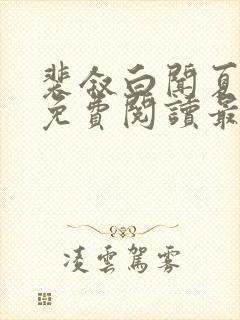 裴叙白聞夏
免費閱讀最
凌雲駕霧